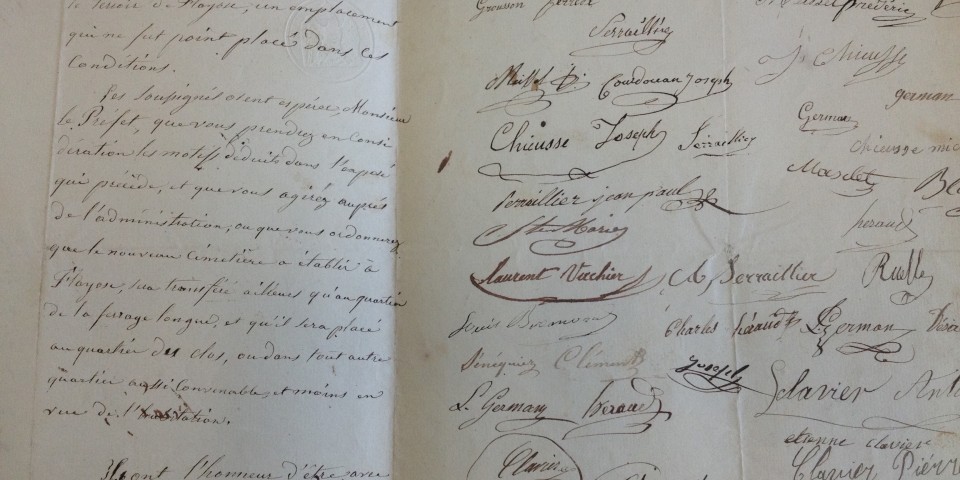 le terroir de Flayosc, un emplacement
qui ne fut point placé dans ces
Conditions.
Les soussignés osent espérer, Monsieur
le Prefet, que vous prendrez en Consi
dération les motifs déduits dans l'exposé
qui précède, et que vous agirez auprès
de l'administration, ou que vous ordonnerez
que le nouveau Cimetière à établir à
Flayosc, sera transféré ailleurs qu'au quartier
de la ferrage longue, et qu'il sera placé
au quartier du clos, ou dans tout autre
quartier aussi Convenable, et moins en
vue de l'habitation.
Ils ont l'honneur d'être avec
Serraillier
Courdouan Joseph
Chieusse Joseph Serraillier
Serraillier jean paul
Laurent Vachier
Serraillier
Ruelle
Louis
Charles héraud
German
Sénéquier Clément
Joseph
L. German
héraud
Clavier
J. Chieusse
german
German
chieusse
héraud
Clavier
etienne clavier
Clavier Pierre